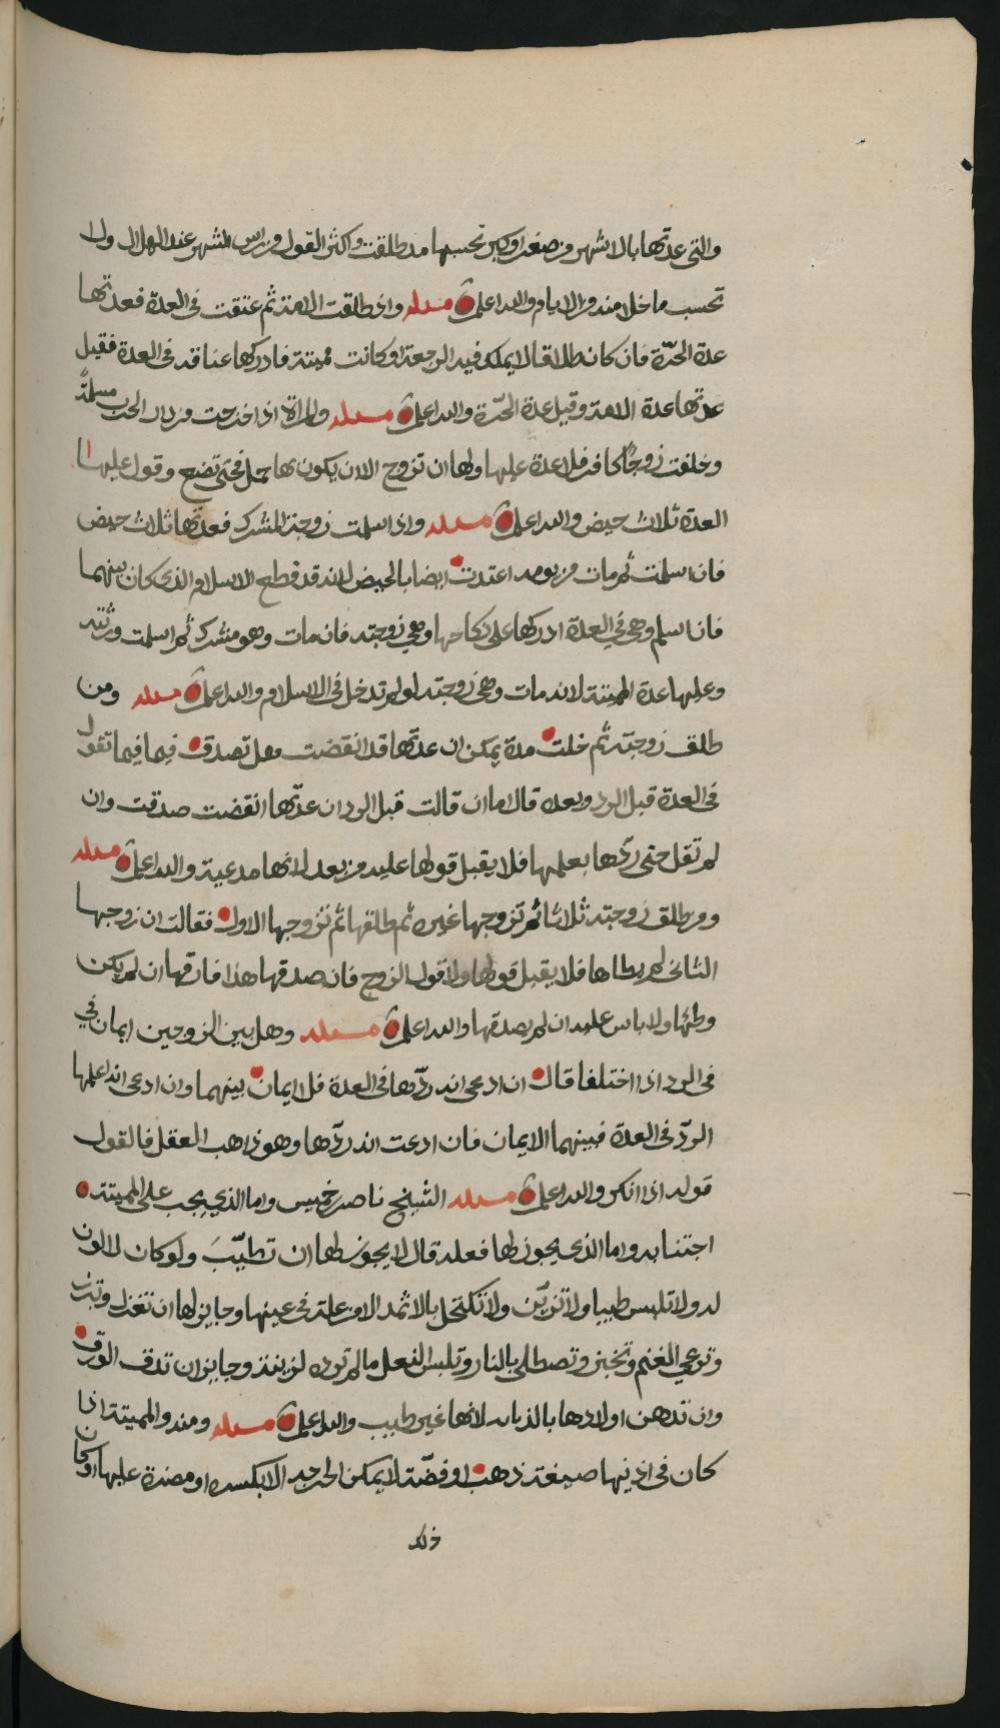 والتى عدتها بالاشهر من صغر او كبر تحسبها مذ طلقت واكثر القول من راس الشهر عند الهلال ولا
تحسب ما خلا منه من الايام والله اعلم مسئلة واذا طلقت الامة ثم عتقت فى العدة فعدتها
عدة الحرّة فان كان طلاقا لا يملك فيه الرجعة او كانت مميتة فادركها عتاقه فى العدة فقيل
عدتها عدة الامة وقيل عدة الحرّة والله اعلم مسئلة والمراة اذا خرجت من دار الحرب مسلمةً
وخلفت زوجًا كافر فلا عدة عليها ولها ان تزوج الا ان يكون بها حمل فحتى تضع وقول عليها
العدة ثلاث حيض والله اعلم مسئلة واذا اسلمت زوجة المشرك فعدتها ثلاث حيض
فان اسلمت ثم مات من يومه اعتدت ايضا بالحيض لانه قد قطع الاسلام الذى كان بينهما
فان اسلم وهى في العدة ادركها على نكاحها وهي زوجته فان مات وهو مشرك ثم اسلمت ورثته
وعليها عدة المميتة لانه مات وهى زوجته لو لم تدخل فى الاسلام والله اعلم مسئلة ومن
طلق زوجته ثم خلت مدة يمكن ان عدتها قد انقضت وهل تصدق فيما فيما تقول
فى العدة قبل الرد وبعده قال اما ان قالت قبل الرد ان عدّتها انقضت صدقت وان
لم تقل حتى ردّها بعلمها فلا يقبل قولها عليه من بعد لانها مدعية والله اعلم مسئلة
ومن طلق زوجته ثلاثا ثم تزوجها غيره ثم طلقها ثم تزوجها الاول فقالت ان زوجها
الثانى لم يطاها فلا يقبل قولها ولا قول الزوج فان صدقها هذا فارقها ان لم يكن
وطئها ولا باس عليه ان لم يصدقها والله اعلم مسئلة وهل بين الزوجين ايمان في
فى الرد اذا اختلفا قال ان ادعى انه ردّها فى العدة فلا ايمان بينهما وان ادعى انه اعلمها
الردّ فى العدة فبينهما الايمان فان ادعت انه ردّها وهو ذاهب العقل فالقول
قوله اذا انكر والله اعلم مسئلة الشيخ ناصر خميس واما الذي يجب على المميتة
اجتنابه واما الذى يجوز لها فعله قال لا يجوز لها ان تطيّبَ ولو كان لا لون
له ولا تلبس طيبا ولا تزيّن ولا تكتحل بالاثمد الا من علة فى عينها وجايز لها ان تغزل
وترعي الغنم وتخبز وتصطلى بالنار وتلبس النعل ما لم ترده لزينة وجايز ان تدق الورق
وان تدهن اولادها بالذباب لانها غير طيب والله اعلم مسئلة ومنه والمميتة اذا
كان فى اذنيها صيغة ذهب او فضّة لا يمكن اخراجه الا بكسره او مضرة عليها او كان
ذلك